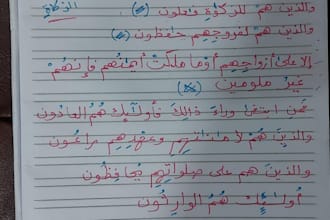 الزكاة
والذين هم للزكوٰة فعلون (٤)
والذين هم لفروجهم حٰفظون (٥)
إلا على أزواجهم أو ما ملكت أيمٰنهم فإنهم
غير ملومين (٦)
فمن ابتغى وراء ذالك فأولئك هم العادون
والذين هم لأمانـٰتهم وعهدهم راعون
والذين هم على صلواتهم يحافظون
أولئك هم الوارثون